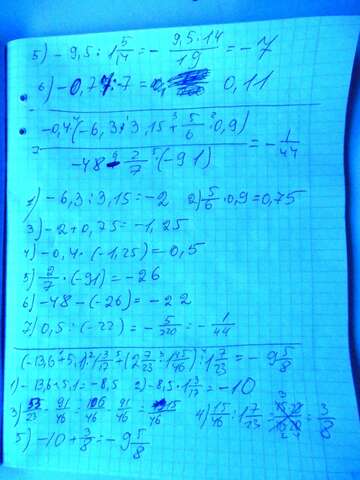 5) - 9,5 : 1 5/14 = - 9,5·14/19 = - 7
6) - 0,77 : 7 = 0,11
-0,4·(-6,3 : 3,15 + 5/6 · 0,9)
/ -48 - 2/7 · (-91) = - 1/44
1) - 6,3 : 3,15 = -2 2) 5/6 · 0,9 = 0,75
3) - 2 + 0,75 = - 1,25
4) -0,4 · (-1,25) = 0,5
5) 2/7 · (-91) = -26
6) -48 - (-26) = - 22
7) 0,5 : (-22) = - 5/220 = - 1/44
(-13,6 + 5,1) · 1 3/17 + (2 7/23 - 1 45/46) : 1 7/23 = - 9 5/8
1) - 13,6 + 5,1 = - 8,5 2) - 8,5 · 1 3/17 = -10
3) 53/23 - 91/46 = 106/46 - 91/46 = 15/46 4) 15/46 : 1 7/23 = = 3/8
5) -10 + 3/8 = - 9 5/8